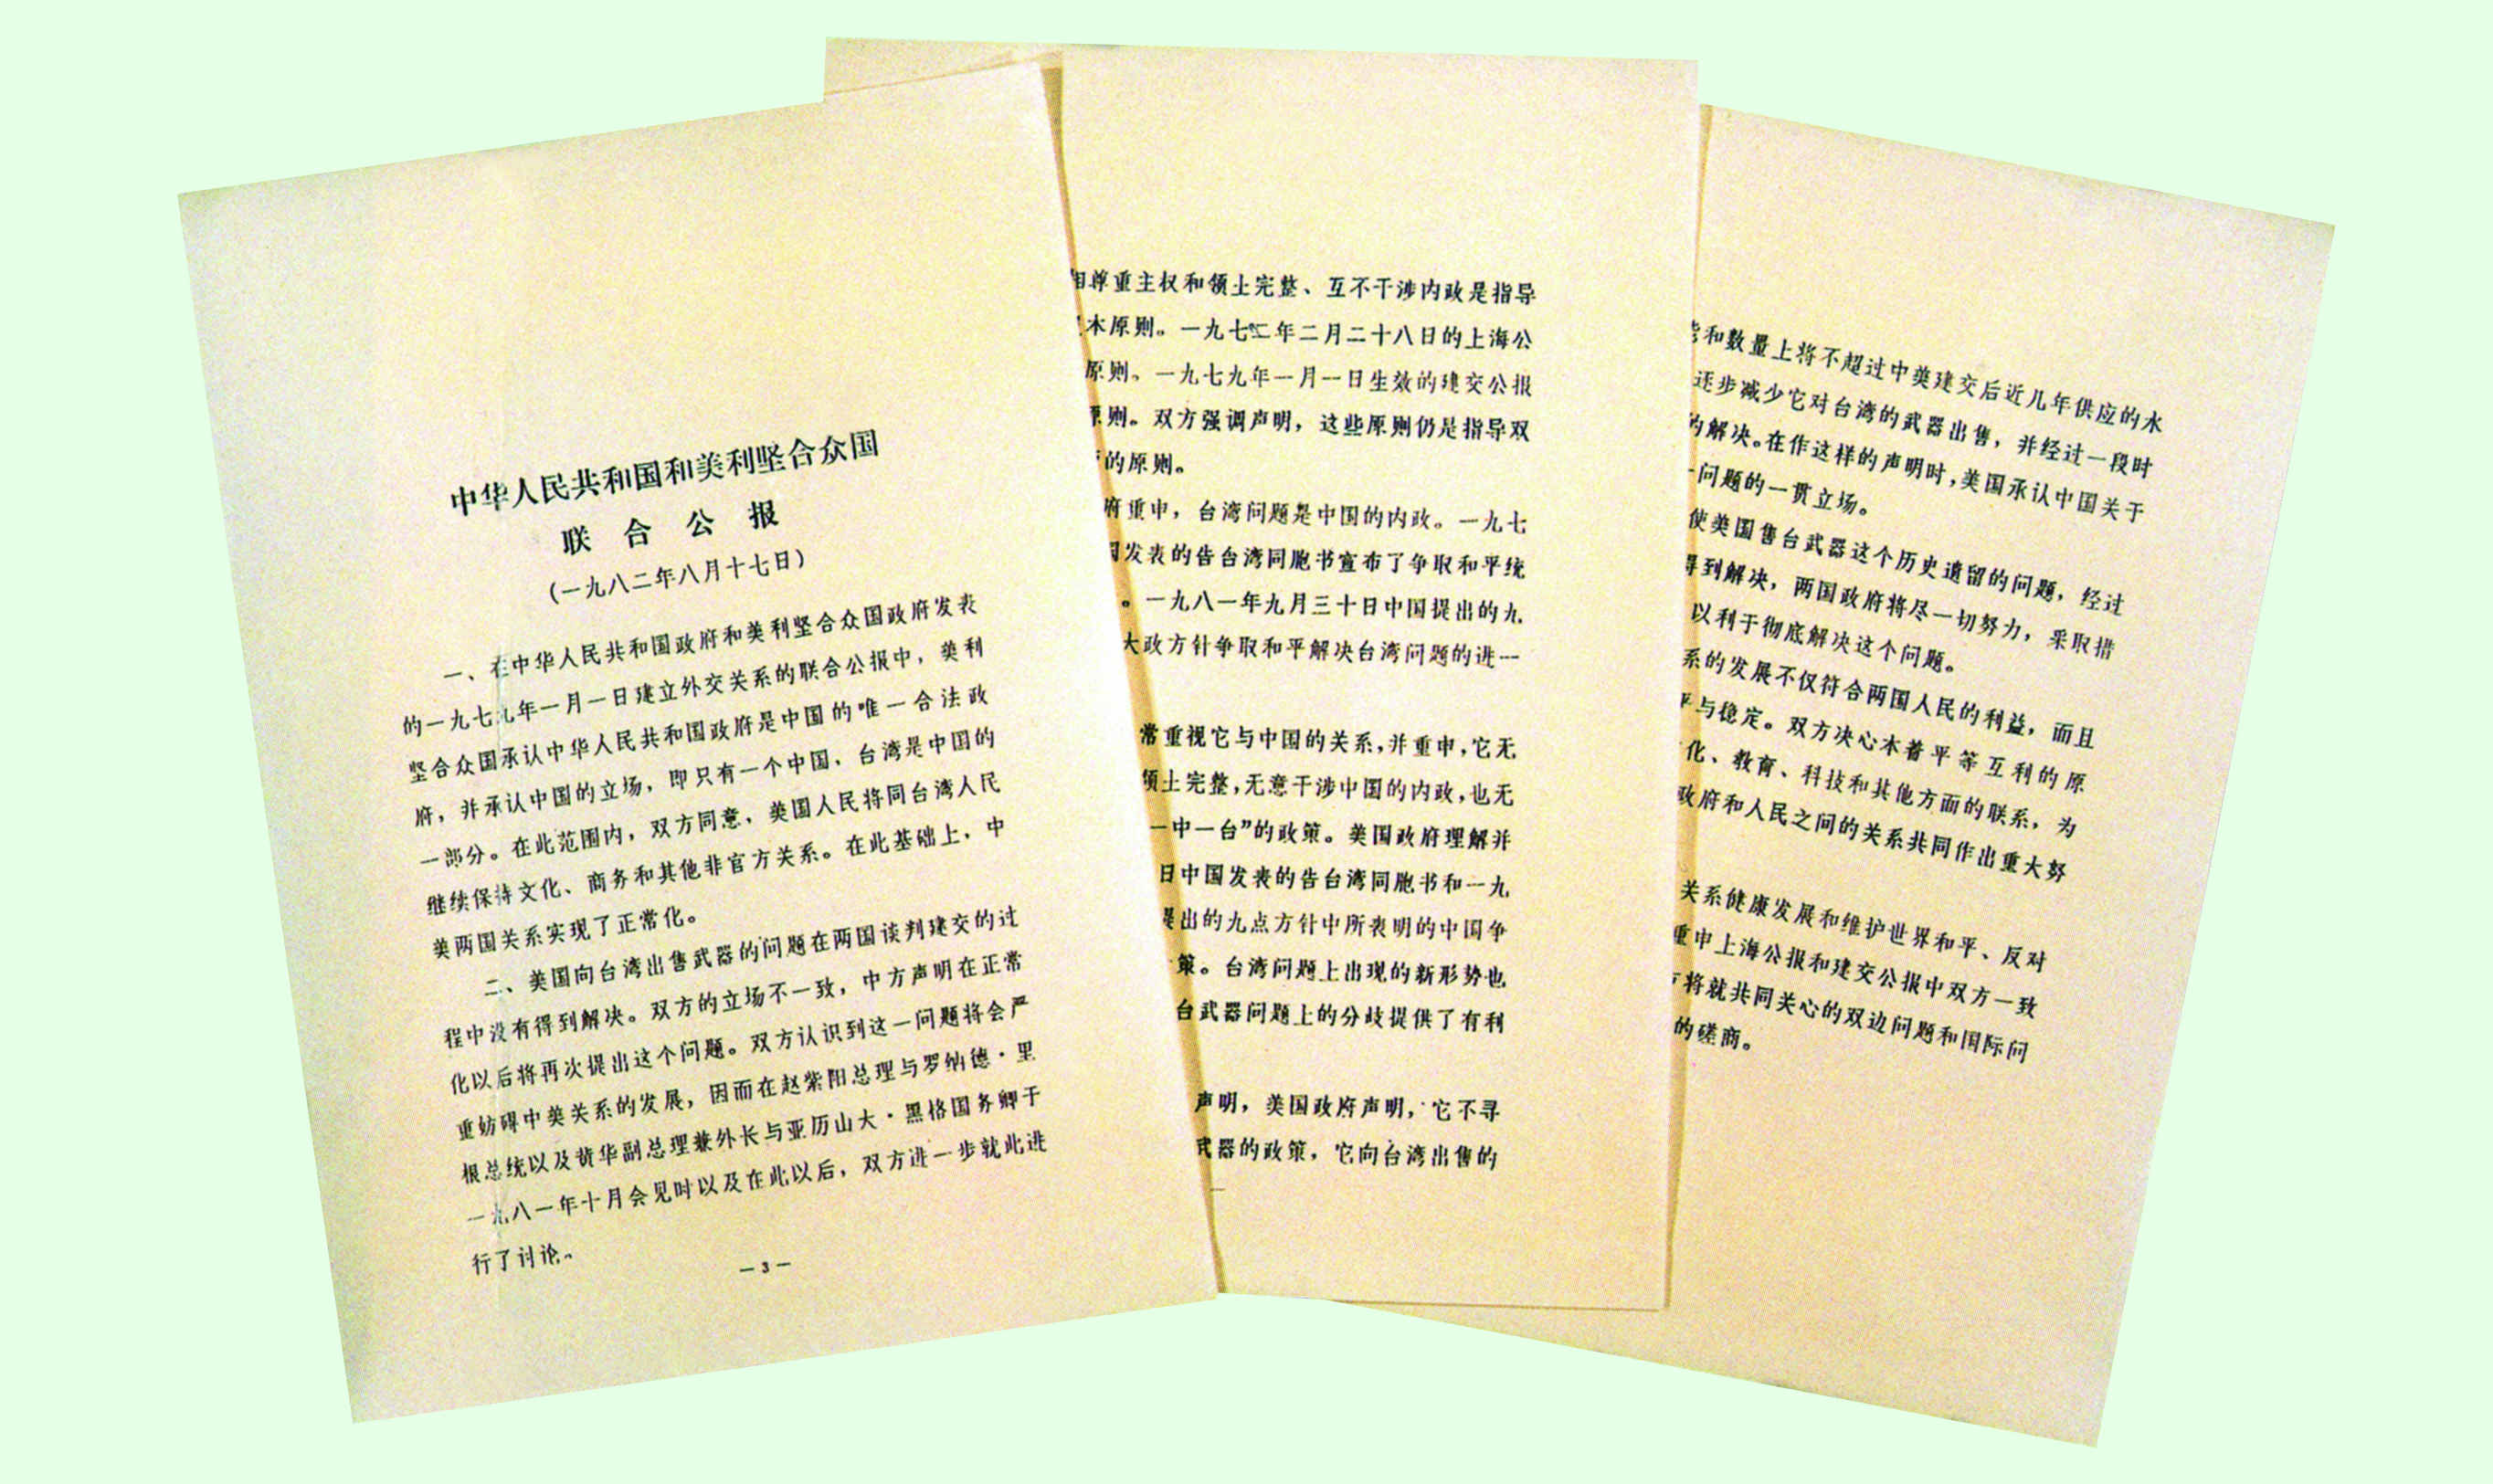 中华人民共和国和美利坚合众国
联合公报
(一九八二年八月十七日)
一、在中华人民共和国政府和美利坚合众国政府发表
的一九七九年一月一日建立外交关系的联合公报中，美利
坚合众国承认中华人民共和国政府是中国的唯一合法政
府，并承认中国的立场，即只有一个中国、台湾是中国的
一部分。在此范围内，双方同意，美国人民将同台湾人民
继续保持文化、商务和其他非官方关系。在此基础上，中
美两国关系实现了正常化。
二、美国向台湾出售武器的问题在两国谈判建交的过
程中没有得到解决。双方的立场不一致，中方声明在正常
化以后将再次提出这个问题。双方认识到这一问题将会严
重妨碍中美关系的发展，因而在赵紫阳总理与罗纳德·里
根总统以及黄华副总理兼外长与亚历山大·黑格国务卿于
一九八一年十月会见时以及在此以后，双方进一步就此进
行了讨论。
—3—
相尊重主权和领土完整、互不干涉内政是指导
本原则。一九七二年二月二十八日的上海公
原则。一九七九年一月一日生效的建交公报
原则。双方强调声明，这些原则仍是指导双
的原则。
府重申，台湾问题是中国的内政。一九七
发表的告台湾同胞书宣布了争取和平统
。一九八一年九月三十日中国提出的九
大政方针争取和平解决台湾问题的进一
常重视它与中国的关系，并重申，它无
领土完整，无意干涉中国的内政，也无
一中一台”的政策。美国政府理解并
日中国发表的告台湾同胞书和一九
提出的九点方针中所表明的中国争
策。台湾问题上出现的新形势也
台武器问题上的分歧提供了有利
声明，美国政府声明，它不寻
武器的政策，它向台湾出售的
和数量上将不超过中美建交后近几年供应的水
逐步减少它对台湾的武器出售，并经过一段时
的解决。在作这样的声明时，美国承认中国关于
一问题的一贯立场。
使美国售台武器这个历史遗留的问题，经过
得到解决，两国政府将尽一切努力，采取措
以利于彻底解决这个问题。
系的发展不仅符合两国人民的利益，而且
平与稳定。双方决心本着平等互利的原
化、教育、科技和其他方面的联系，为
政府和人民之间的关系共同作出重大努
关系健康发展和维护世界和平、反对
重申上海公报和建交公报中双方一致
将就共同关心的双边问题和国际问
的磋商。